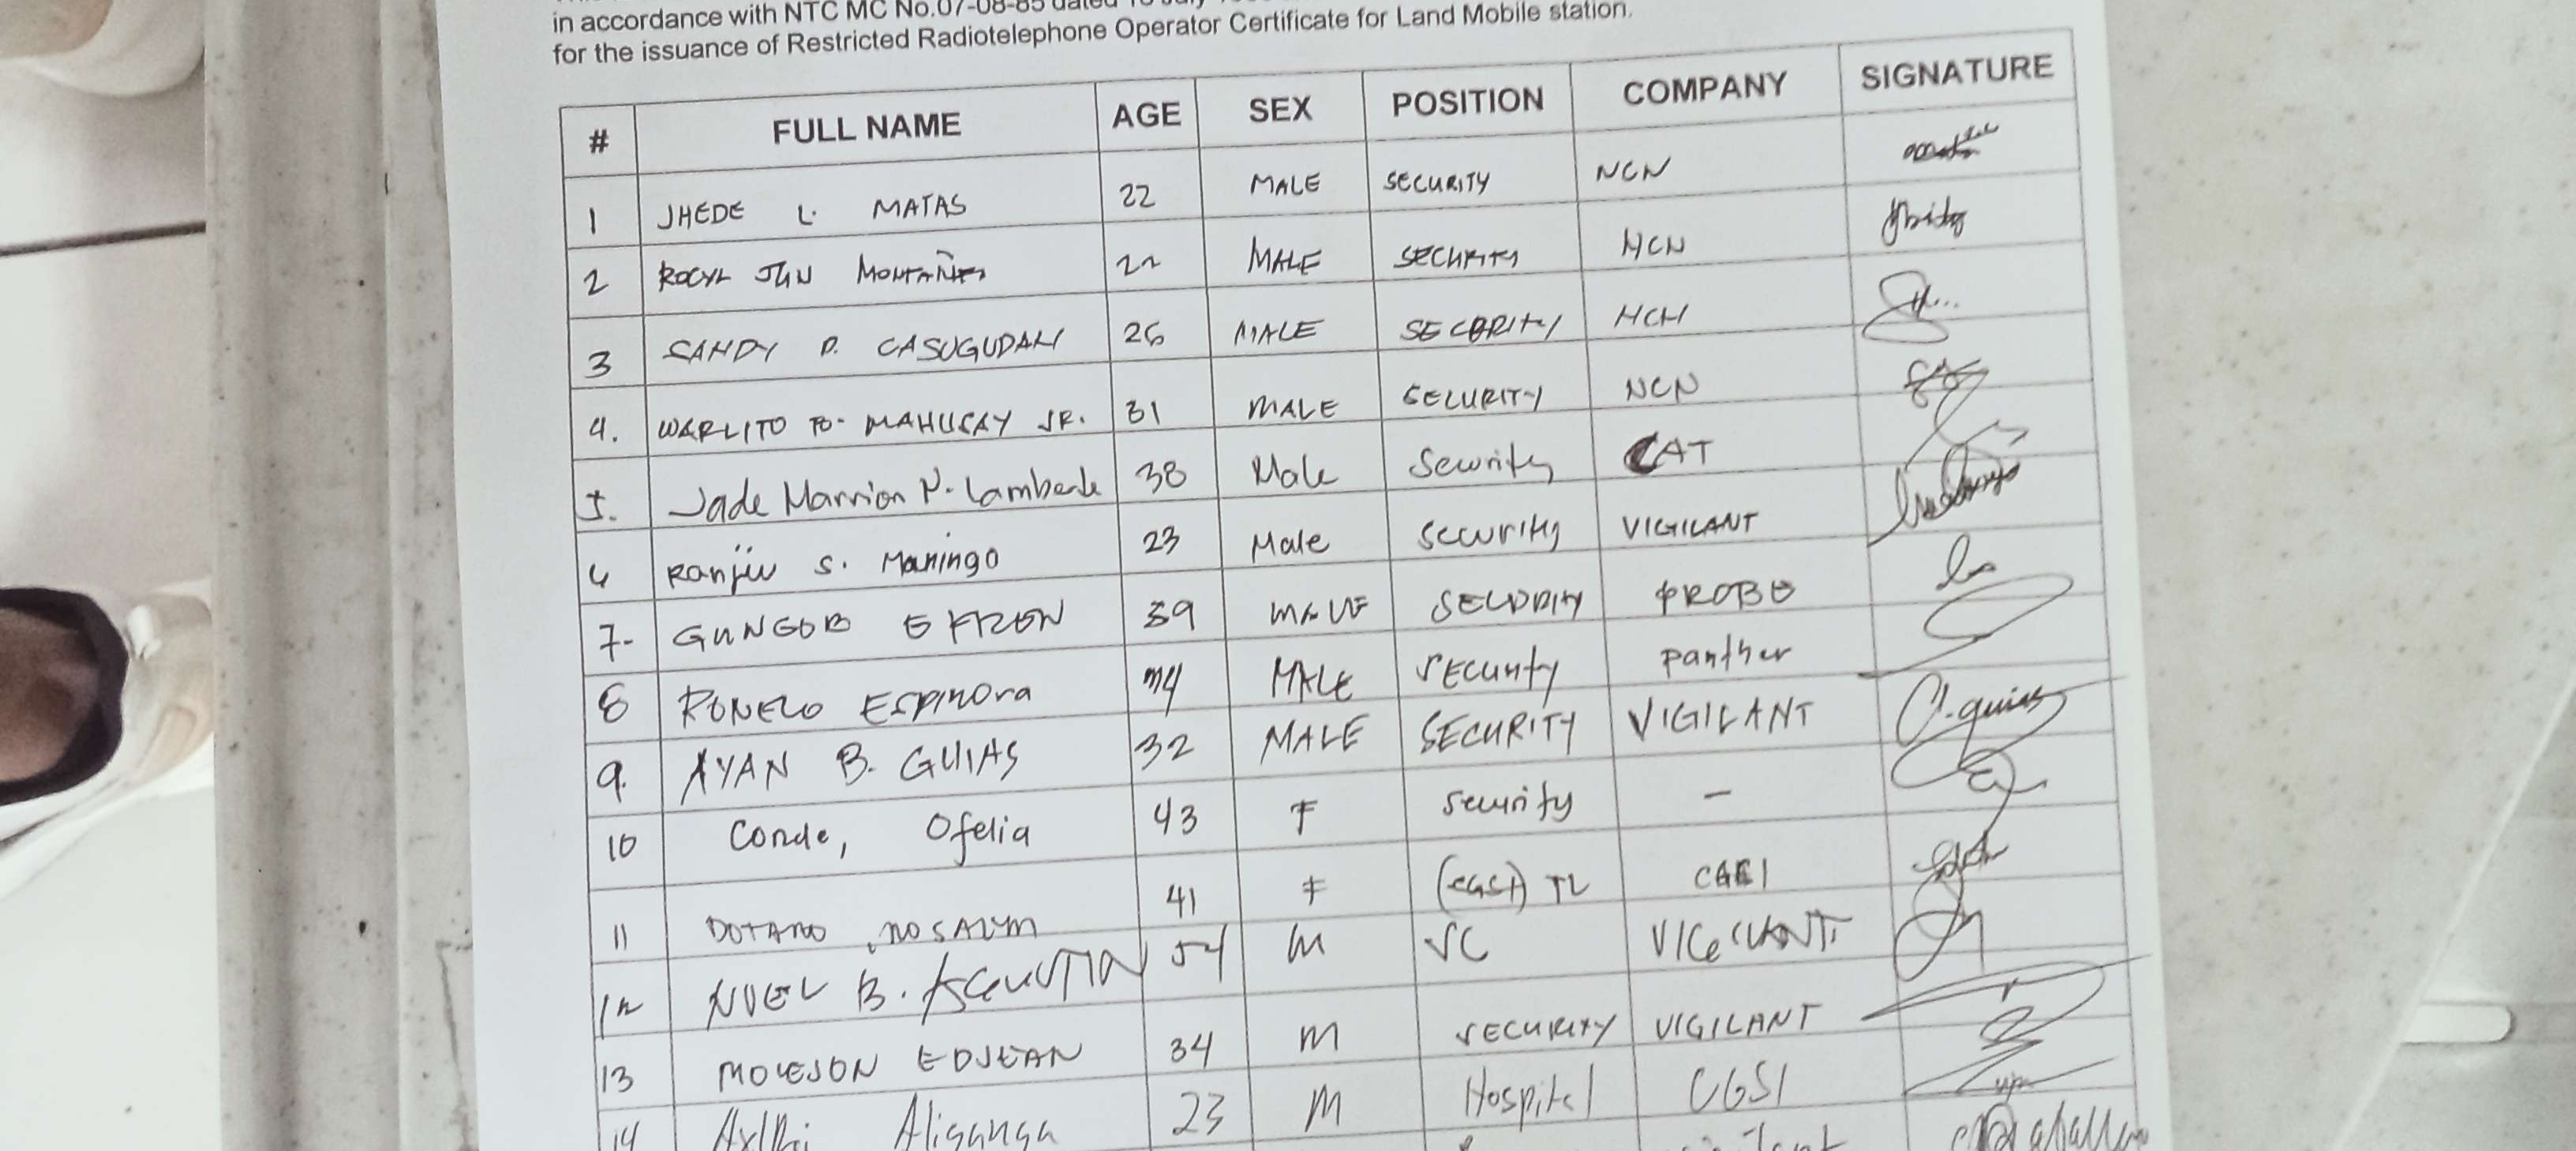 in accordance with NTC MC No.07-08-85 dated
for the issuance of Restricted Radiotelephone Operator Certificate for Land Mobile station.
# FULL NAME AGE SEX POSITION COMPANY SIGNATURE
1 JHEDE L. MATAS 22 MALE SECURITY NCN
2 ROCYL JUN MONTAÑES 22 MALE SECURITY NCN
3 SANDY D. CASUGUDAN 26 MALE SECURITY NCN
4. WARLITO MAHUSAY JR. 31 MALE SECURITY NCN
5. Jade Marrion N. 38 Male Security CAT
6 Ranjiv S. Maningo 23 Male Security VIGILANT
7- 39 MALE SECURITY PROBE
8 RONELO ESPINOSA 44 MALE SECURITY panther
9. AYAN B. GUIAS 32 MALE SECURITY VIGILANT
10 Conde, Ofelia 43 F Security -
11 41 F (CGSI) TL CGSI
12 NOEL B. AGUSTIN 54 M VIGILANT
13 MOLEJON EDJEAN 34 M SECURITY VIGILANT
14 Aliganga 23 M Hospital CGSI